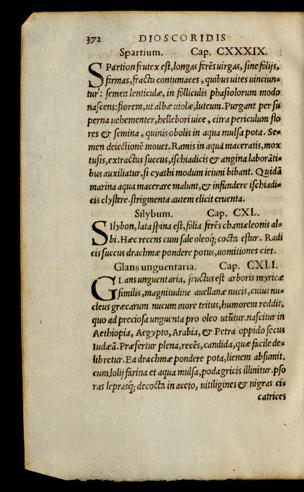 372 DIOSCORIDIS
Spartium. Cap. CXXXIX.
SPartion frutex est, longas ferẽs uirgas, sine folijs,
firmas, fractu contumaces, quibus uites uinciun-
tur: semen lenticulæ, in folliculis phasiolorum modo
nascens: florem, ut albæ uiolæ, luteum. Purgant per su
perna uehementer, hellebori uice, citra periculum flo
res & semina, quinis obolis in aqua mulsa pota. Se-
men deiectionẽ mouet. Ramis in aqua maceratis, mox
tusis, extractus succus, ischiadicis & angina laborãti-
bus auxiliatur, si cyathi modum ieiuni bibant. Quidã
marina aqua macerare malunt, & infundere ischiadi-
cis clystere. strigmenta autem elicit cruenta.
Silybum. Cap. CXL.
SIlybon, lata spina est, folia ferẽs chamæleonis al-
bi. Hæc recens cum sale oleoq́; cocta estur. Radi
cis succus drachmæ pondere potus, uomitiones ciet.
Glans unguentaria. Cap. CXLI.
GLans unguentaria, fructus est arboris myricæ
similis, magnitudine auellanæ nucis, cuius nu-
cleus græcarum nucum more tritus, humorem reddit,
quo ad preciosa unguenta pro oleo utũtur. nascitur in
Aethiopia, Aegypto, Arabia, & Petra oppido secus
Iudæã. Præfertur plena, recẽs, candida, quæ facile de-
libretur. Ea drachmæ pondere pota, lienem absumit.
cum lolij farina et aqua mulsa, podagricis illinitur. pso
ras leprasq́; decocta in aceto, uitiligines & nigras ci-
catrices